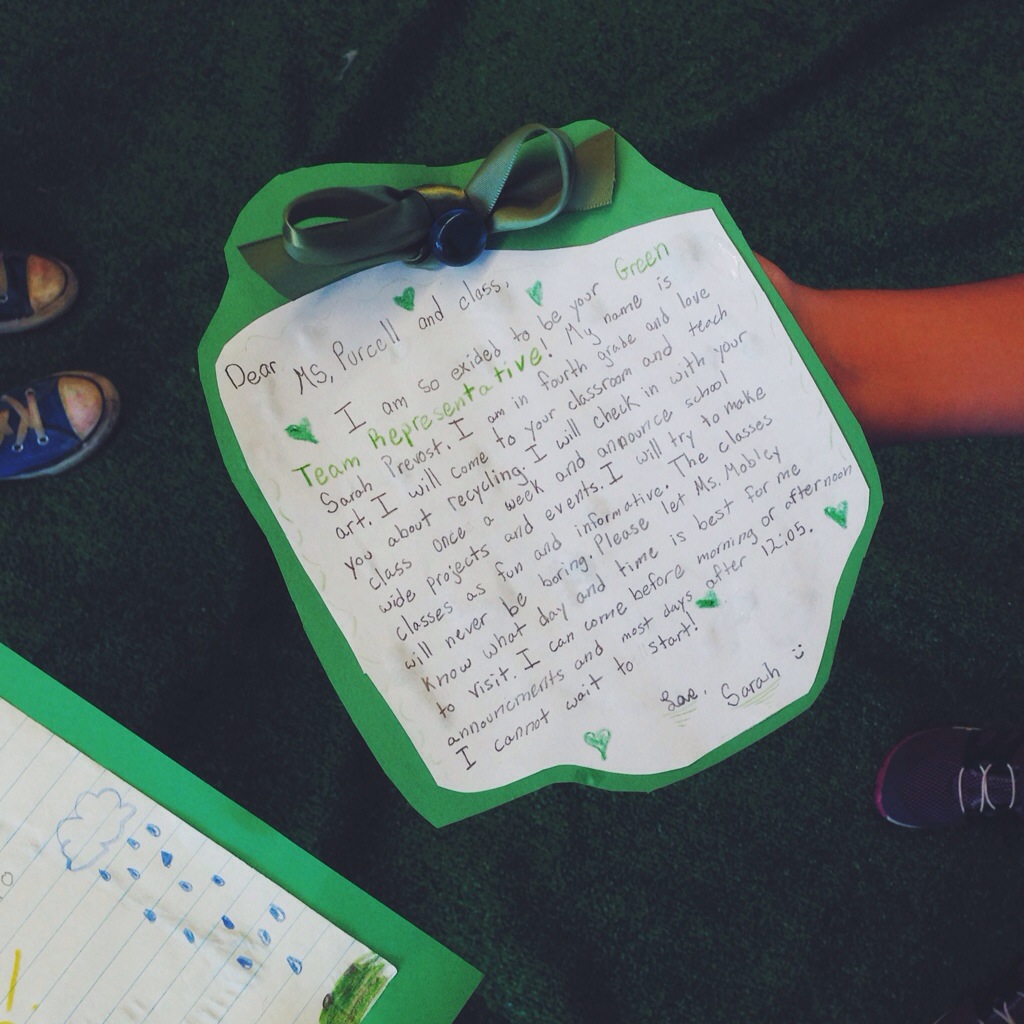 Dear Ms. Purcell and class,
I am so exided to be your Green
Team Representative! My name is
Sarah Prevost. I am in fourth grade and love
art. I will come to your classroom and teach
you about recycling. I will check in with your
class once a week and announce school
wide projects and events. I will try to make
classes as fun and informative. The classes
will never be boring. Please let Ms. Mobley
know what day and time is best for me
to visit. I can come before morning or afternoon
announcments and most days after 12:05.
I cannot wait to start!
Love,
Sarah